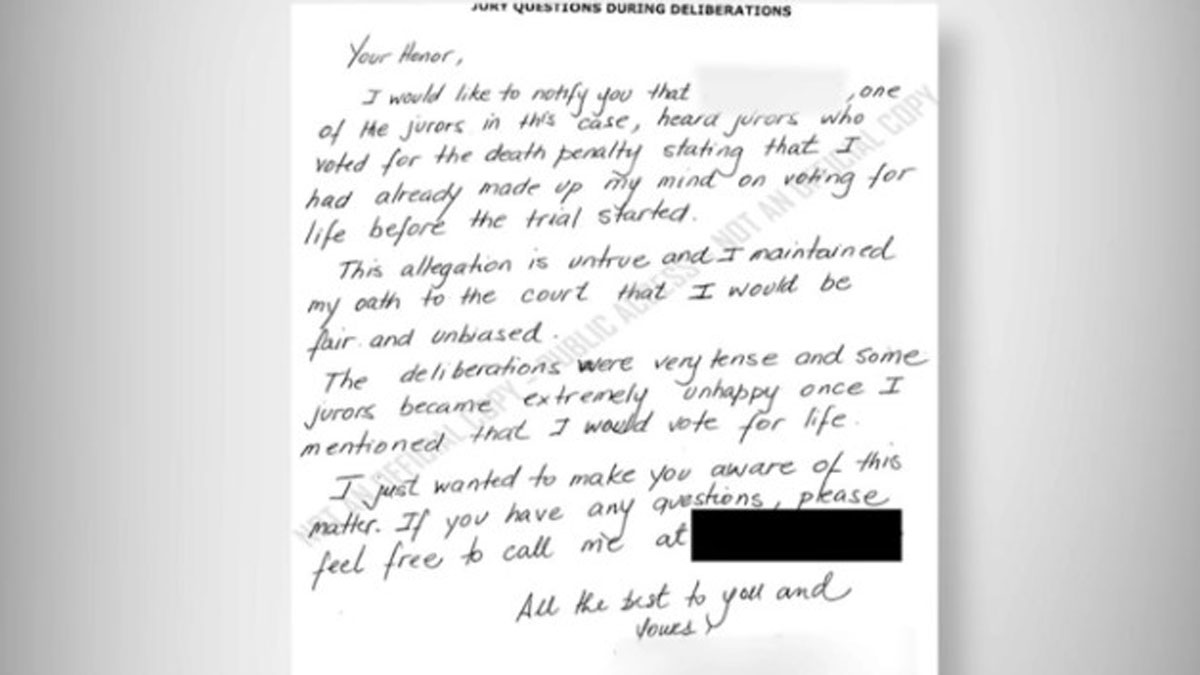 JURY QUESTIONS DURING DELIBERATIONS
Your Honor,
I would like to notify you that , one
of the jurors in this case, heard jurors who
voted for the death penalty stating that I
had already made up my mind on voting for
life before the trial started.
This allegation is untrue and I maintained
my oath to the court that I would be
fair and unbiased.
The deliberations were very tense and some
jurors became extremely unhappy once I
mentioned that I would vote for life.
I just wanted to make you aware of this
matter. If you have any questions, please
feel free to call me at
All the best to you and
yours,
NOT AN OFFICIAL COPY - PUBLIC ACCESS NOT AN OFFICIAL COPY